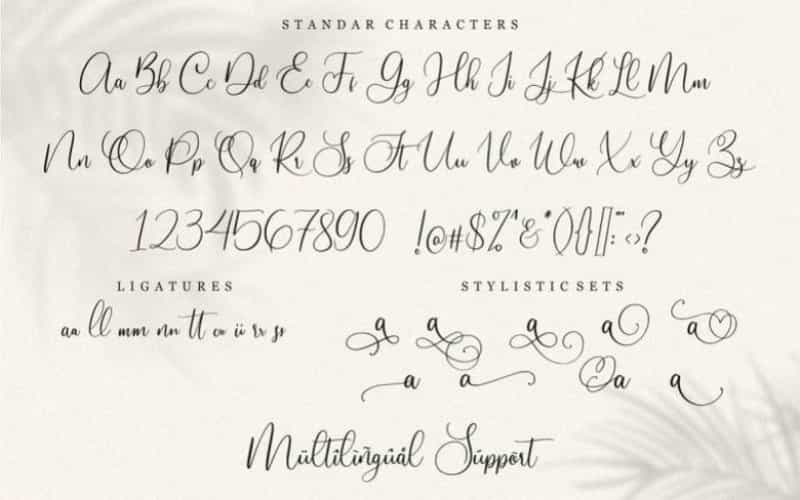 STANDAR CHARACTERS
Aa Bb Cc Dd Ee Ff Gg Hh Ii Jj Kk Ll Mm
Nn Oo Pp Qq Rr Ss Tt Uu Vv Ww Xx Yy Zz
1234567890 !@#$%^&*(){}[]:"<>?
LIGATURES
aa ll mm nn tt
STYLISTIC SETS
a a a a a
a a a a
Mültilìñgûál Súppört